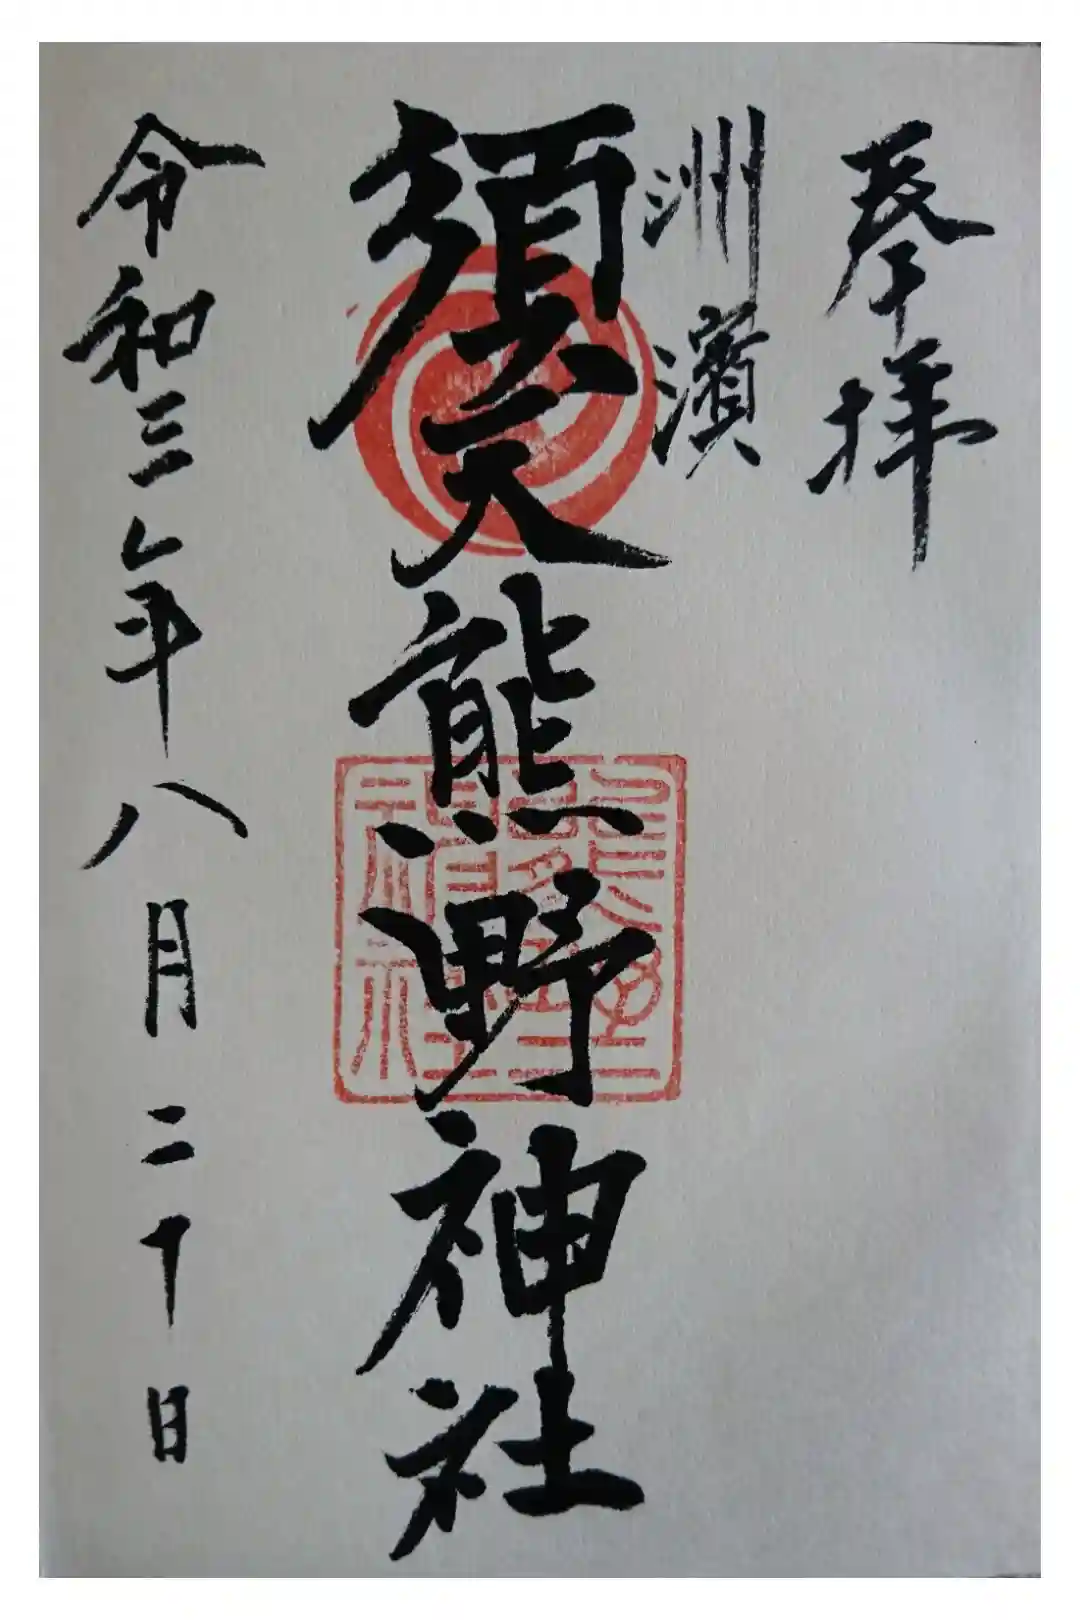 奉拝
洲濱
須天熊野神社
令和三年八月二十日